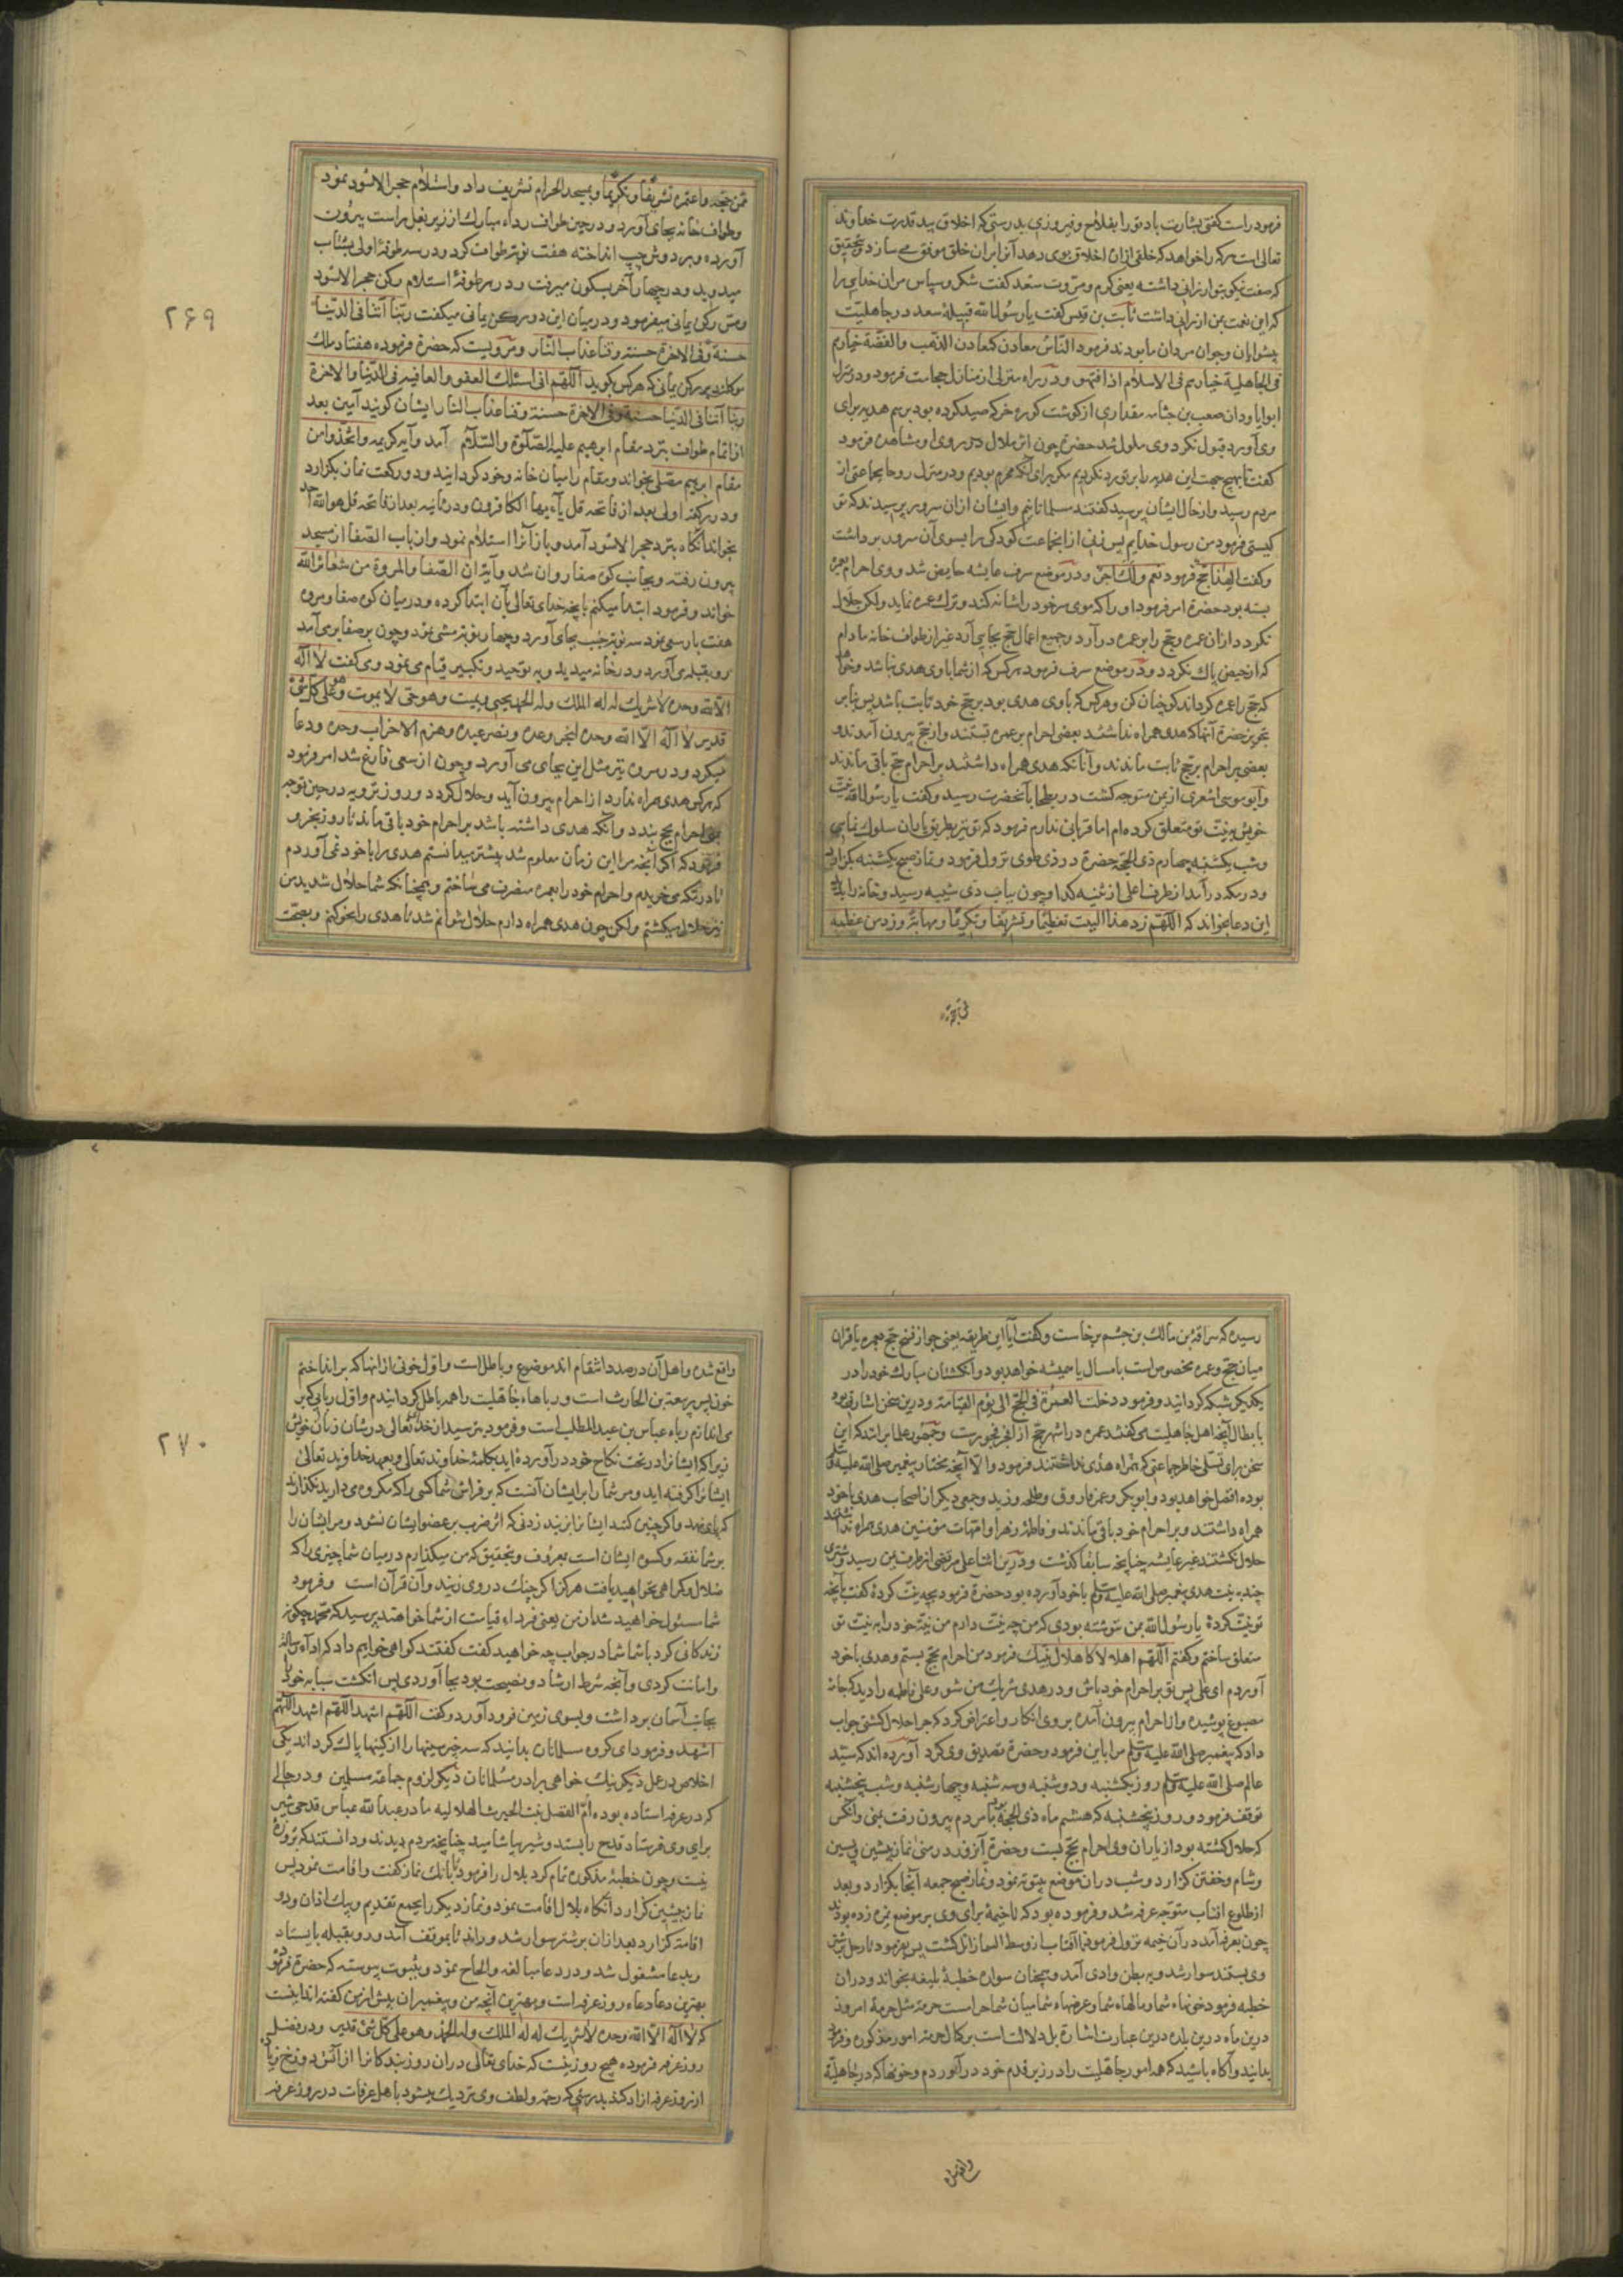 فرمود راست کفتی بشارت باد تو را بفلاح و فیروزی بدرستی که اخلاق بید قدرت خداوند
تعالی است هرکه را خواهد که خلقی ازان اخلاق بوی دهد آنرا بران خلق موفق می سازد و بتحقیق
که صفت نیکو بتو ارزانی داشته یعنی کرم و مروت سعد کفت شکر و سپاس مران خدایرا
که این نعمت بمن ارزانی داشت ثابت بن قیس کفت یا رسول الله قبیلهٔ سعد در جاهلیت
پیشوایان و جوان مردان ما بودند فرمود الناس معادن کمعادن الذهب والفضة خیارهم
فی الجاهلیة خیارهم فی الاسلام اذا فقهوا و در راه منزلی از منازل حجامت فرمود و در منزل
ابوا یا ودان صعب بن جثامه مقداری از کوشت کوره خر که صید کرده بود برسم هدیه برای
وی آورد قبول نکرد وی ملول شد حضرة چون اثر ملال در روی او مشاهده فرمود
کفت تا بهیچ جهت این هدیه را بر تو رد نکردیم مکر برای آنکه محرم بودیم و در منزل روحا بجماعتی از
مردم رسید و از حال ایشان پرسید کفتند مسلمانانیم و ایشان ازان سرور پرسیدند که تو
کیستی فرمود من رسول خدایم پس زنی از انجماعت کودکی را بسوی آن سرور برداشت
وکفت الهذا حج فرمود نعم ولک اجر و در موضع سرف عایشه حایض شد و وی احرام بعمره
بسته بود حضرة امر فرمود او را که موی سر خود را شانه کند و ترک عمره نماید ولکن حلال
نکردد ازان عمره و حج را بر عمره در آرد و جمیع اعمال حج بجای آرد غیر از طواف خانه مادام
که از حیض پاک نکردد و در موضع سرف فرمود هرکس که از شما با وی هدی نباشد و خواهد
که حج را عمره کرداند کو چنان کن و هرکس که با وی هدی بود بر حج خود ثابت باشد پس بنابر
تجویز حضرة آنها که هدی همراه نداشتند بعضی احرام بر عمره بستند و از حج بیرون آمدند و
بعضی بر احرام بر حج ثابت ماندند و آنانکه هدی همراه داشتند بر احرام حج باقی ماندند
و ابو موسی اشعری از یمن متوجه کشت در بطحا بآنحضرت رسید و کفت یا رسول الله نیت
خویش بر نیت تو متعلق کرده ام اما قربانی ندارم فرمود که تو نیز بطریق یاران سلوک نمای
و شب یکشنبه چهارم ذی الحجه حضرة در ذی طوی نزول فرمود و نماز صبح یکشنبه بکزارد
و در مکه درآمد از طرف اعلی از ثنیه کدا و چون بباب بنی شیبه رسید و خانه را بدید
این دعا بخواند که اللهم زد هذا البیت تعظیما و تشریفا و تکریما و مهابة وزد من عظمه
ممن حجه واعتمره تشریفا وتکریما و بمسجد الحرام تشریف داد و استلام حجر الاسود نمود
و طواف خانه بجای آورد و در حین طواف رداء مبارک از زیر بغل راست بیرون
آورده و بر دوش چپ انداخته هفت نوبت طواف کرد و در سه طوفهٔ اولی بشتاب
میدوید و در چهار آخر بسکون میرفت و در هر طوفهٔ استلام رکن حجر الاسود
ومس رکن یمانی میفرمود و در میان این دو رکن یمانی میکفت ربنا آتنا فی الدنیا
حسنة وفی الاخرة حسنة وقنا عذاب النار و مرویست که حضرة فرموده هفتاد ملک
موکلند بر رکن یمانی که هرکس بکوید اللهم انی اسئلک العفو والعافیة فی الدنیا والاخرة
ربنا آتنا فی الدنیا حسنة وفی الاخرة حسنة وقنا عذاب النار ایشان کویند آمین بعد
از اتمام طواف بنزد مقام ابرهیم علیه الصلوة والسلام آمد و آیه کریمه واتخذوا من
مقام ابرهیم مصلی بخواند و مقام را میان خانه و خود کردانید و دو رکعت نماز بکزارد
و در رکعة اولی بعد از فاتحه قل یا ایها الکافرون و در ثانیه بعد از فاتحه قل هو الله احد
بخواند آنکاه بنزد حجر الاسود آمد و باز آنرا استلام نمود و از باب الصفا از مسجد
بیرون رفته و بجانب کوه صفا روان شد و آیة ان الصفا والمروة من شعائر الله
خواند و فرمود ابتدا میکنم بانچه خدای تعالی بان ابتدا کرده و در میان کوه صفا و مروه
هفت بار سعی نمود سه نوبت خبب بجای آورد و چهار نوبت مشی نمود و چون بر صفا بر می آمد
رو بقبله می آورد و در خانه میدید و بتوحید و تکبیر قیام می نمود و می کفت لا اله
الا الله وحده لا شریک له له الملک وله الحمد یحیی ویمیت وهو حی لا یموت وهو علی کل شئ
قدیر لا اله الا الله وحده انجز وعده ونصر عبده وهزم الاحزاب وحده و دعا
میکرد و در مروه نیز مثل این بجای می آورد و چون از سعی فارغ شد امر فرمود
که هرکس هدی همراه ندارد از احرام بیرون آید و حلال کردد و روز ترویه در حین توجه
بمنی احرام حج بندد و آنکه هدی داشته باشد بر احرام خود باقی ماند تا روز نحر و
فرمود که اکر آنچه مرا این زمان معلوم شد پیشتر میدانستم هدی را با خود نمی آوردم
تا در مکه می خریدم و احرام خود را بعمره مصرف می ساختم و همچنانکه شما حلال شدید من
نیز حلال میکشتم ولکن چون هدی همراه دارم حلال نتوانم شد تا هدی را نحر کنم و بصحت
۲۶۹
رسیده که سراقة بن مالک بن جشم برخاست و کفت آیا این طریقه یعنی جواز فسخ حج بعمره یا قران
میان حج و عمره مخصوص است بامسال یا همیشه خواهد بود و آنکشتان مبارک خود را در
یکدیکر شبکه کردانید و فرمود دخلت العمرة فی الحج الی یوم القیامة و درین سخن اشارت بود
بابطال آنچه اهل جاهلیت می کفتند عمره در اشهر حج از افجر فجورست و جمهور علما برانند که این
سخن برای تسلی خاطر جماعتی که همراه هدی نداشتند فرمود والا آنچه مختار پیغمبر صلی الله علیه وسلم
بوده افضل خواهد بود و ابوبکر و عمر فاروق و طلحه و زبیر و جمعی دیکر از اصحاب هدی با خود
همراه داشتند و بر احرام خود باقی ماندند و فاطمه زهرا و امهات مؤمنین هدی همراه نداشتند
حلال کشتند غیر عایشه چنانچه سابقا کذشت و درین اثنا علی مرتضی از طرف یمن رسید و شتری
چند به نیت هدی پیغمبر صلی الله علیه وسلم با خود آورده بود حضرة فرمود بچه نیت کردهٔ کفت بآنچه
تو نیت کردهٔ یا رسول الله بمن ننوشته بودی که من چه نیت دارم من نیة خود را به نیت تو
متعلق ساختم و کفتم اللهم اهلالا کاهلال نبیک فرمود من احرام بحج بستم و هدی با خود
آوردم ای علی پس تو بر احرام خود باش و در هدی شریک من شو و علی فاطمه را دید که جامهٔ
مصبوغ پوشیده و از احرام بیرون آمده بر وی انکار و اعتراض کرد که چرا حلال کشتی جواب
داد که پیغمبر صلی الله علیه وسلم مرا باین فرمود و حضرة تصدیق وی کرد آورده اند که سید
عالم صلی الله علیه وسلم روز یکشنبه و دوشنبه و سه شنبه و چهارشنبه و شب پنجشنبه
توقف فرمود و روز پنجشنبه که هشتم ماه ذی الحجه بود با مردم بیرون رفت بمنی و آنکس
که حلال کشته بود از یاران وی احرام بحج بست و حضرة آنروز در منی نماز پیشین و پسین
و شام و خفتن کزارد و شب دران موضع بیتوته نمود و نماز صبح جمعه آنجا بکزارد و بعد
از طلوع افتاب متوجه عرفه شد و فرموده بود که تا خیمهٔ برای وی بر موضع نمره زده بودند
چون بعرفه آمد در آن خیمه نزول فرمود تا آفتاب از وسط السما زائل کشت پس بفرمود تا رحل بر شتر
وی بستند سوار شد و به بطن وادی آمد و همچنان سواره خطبهٔ بلیغه بخواند و دران
خطبه فرمود خونهاء شما و مالهاء شما و عرضهاء شما میان شما حرامست حرمة مثل حرمة امروز
درین ماه درین بلده و درین عبارت اشارة بل دلالتست بر کمال حرمة امور مذکوره و فرمود
بدانید و آکاه باشید که همه امور جاهلیت را در زیر قدم خود درآوردم و خونها که در جاهلیة
واقع شده و اهل آن در صدد انتقام اند موضوع و باطل است و اول خونی از انها که براندازم
خون پسر ربیعة بن الحارث است و رباهاء جاهلیت را همه باطل کردانیدم و اول ربایی که بر
می اندازم رباء عباس بن عبدالمطلب است و فرمود بترسید از خدای تعالی در شان زنان خویش
زیرا که ایشانرا در تحت نکاح خود درآورده اید بکلمهٔ خداوند تعالی و بعهد خداوند تعالی
ایشانرا کرفته اید و مر شما را بر ایشان آنست که بر فراش شما کسی را که مکروه می دارید نکذارند
که پای نهد و اکر چنین کنند ایشانرا بزنید زدنی که اثر ضرب بر عضو ایشان نشود و مر ایشان را
بر شما نفقه و کسوه ایشان است بمعروف و بتحقیق که من میکذارم در میان شما چیزی را که
ضلال و کمراهی نخواهید یافت هرکز اکر چنک در وی زنید و آن قرآن است و فرمود
شما مسئول خواهید شد از من یعنی فرداء قیامت از شما خواهند پرسید که محمد چکونه
زندکانی کرد با شما شما در جواب چه خواهید کفت کفتند کواهی خواهیم داد که اداء رسالة
و امانت کردی و آنچه شرط ارشاد و نصیحت بود بجا آوردی پس انکشت سبابه خود
بجانب آسمان برداشت و بسوی زمین فرود آورد و کفت اللهم اشهد اللهم اشهد اللهم
اشهد و فرمود ای کروه مسلمانان بدانید که سه چیز سینها را از کینها پاک کرداند یکی
اخلاص در عمل دیکر نیک خواهی برادر مسلمانان دیکر لزوم جماعة مسلمین و در حالی
که در عرفه استاده بوده ام الفضل بنت الحیرث الهلالیه مادر عبدالله عباس قدحی شیر
برای وی فرستاد قدح را بستد و شیر بیاشامید چنانچه مردم دیدند و دانستند که بروزه
نیست و چون خطبهٔ مذکوره تمام کرد بلال را فرمود تا بانک نماز کفت و اقامت نمود پس
نماز پیشین کزارد آنکاه بلال اقامت نمود و نماز دیکر را بجمع تقدیم و بیک اذان و دو
اقامة کزارد بعد ازان بر شتر سوار شد و راند تا بموقف آمد و رو بقبله بایستاد
و بدعا مشغول شد و در دعا مبالغه و الحاح نمود و بثبوت پیوسته که حضرة فرمود
بهترین دعا دعاء روز عرفه است و بهترین آنچه من و پیغمبران پیش از من کفته اند اینست
که لا اله الا الله وحده لا شریک له له الملک وله الحمد وهو علی کل شئ قدیر و در فضل
روز عرفه فرموده هیچ روز نیست که خدای تعالی دران روز بندکانرا از آتش دوزخ زیاده
از روز عرفه ازاد کند بدرستی که رحمة و لطف وی نزدیک میشود با اهل عرفات در روز عرفه
۲۷۰